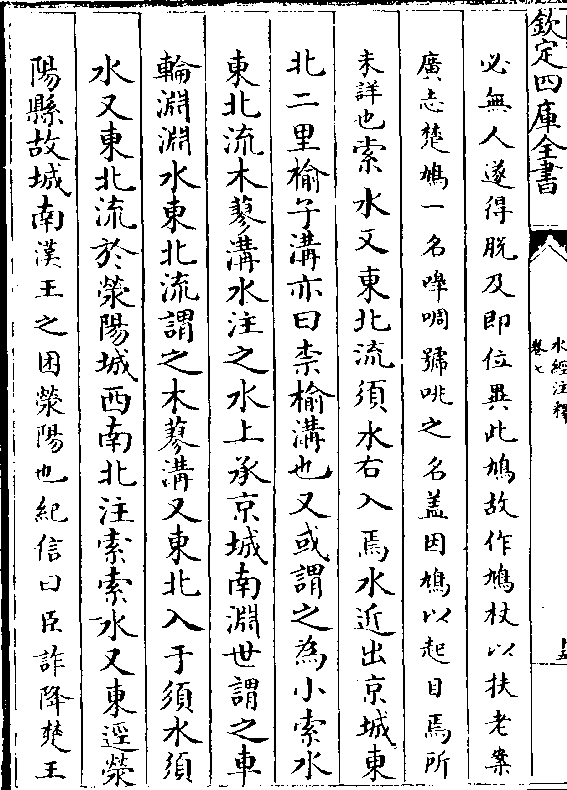 欽定四庫全書
水經注釋
卷七
必無人遂得脫及即位異此鳩故作鳩杖以扶老案
廣志楚鳩一名嘷啁號咷之名蓋因鳩以起目焉所
未詳也索水又東北流須水右入焉水近出京城東
北二里榆子溝亦曰柰榆溝也又或謂之為小索水
東北流木蓼溝水注之水上承京城南淵世謂之車
輪淵淵水東北流謂之木蓼溝又東北入于須水須
水又東北流於滎陽城西南北注索索水又東逕滎
陽縣故城南漢王之困滎陽也紀信曰臣詐降楚王